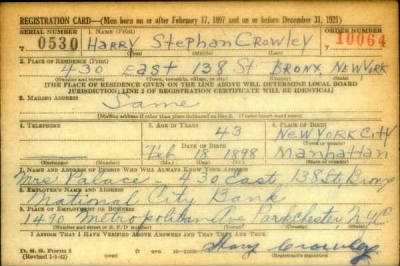 REGISTRATION CARD—(Men born on or after February 17, 1897 and on or before December 31, 1921)
SERIAL NUMBER 1. NAME (Print) ORDER NUMBER
0530 HARRY Stephan Crowley 10064
(First) (Middle) (Last)
2. PLACE OF RESIDENCE (Print)
430 East 138 St BRONX NEW YORK
(Number and street) (Town, township, village, or city) (County) (State)
[THE PLACE OF RESIDENCE GIVEN ON THE LINE ABOVE WILL DETERMINE LOCAL BOARD
JURISDICTION; LINE 2 OF REGISTRATION CERTIFICATE WILL BE IDENTICAL]
3. MAILING ADDRESS
Same
[Mailing address if other than place indicated on line 2. If same insert word same]
4. TELEPHONE 5. AGE IN YEARS 6. PLACE OF BIRTH
43 NEW YORK CITY
DATE OF BIRTH (Town or county)
Feb 18 1898 Manhattan
(Exchange) (Number) (Mo.) (Day) (Yr.) (State or country)
7. NAME AND ADDRESS OF PERSON WHO WILL ALWAYS KNOW YOUR ADDRESS
Mrs. 430 East 138 St Bronx
8. EMPLOYER'S NAME AND ADDRESS
National City Bank
9. PLACE OF EMPLOYMENT OR BUSINESS
1490 Metropolitan Ave Parkchester N.Y.C.
(Number and street or R. F. D. number) (Town) (County) (State)
I AFFIRM THAT I HAVE VERIFIED ABOVE ANSWERS AND THAT THEY ARE TRUE.
D. S. S. Form 1
Harry Crowley